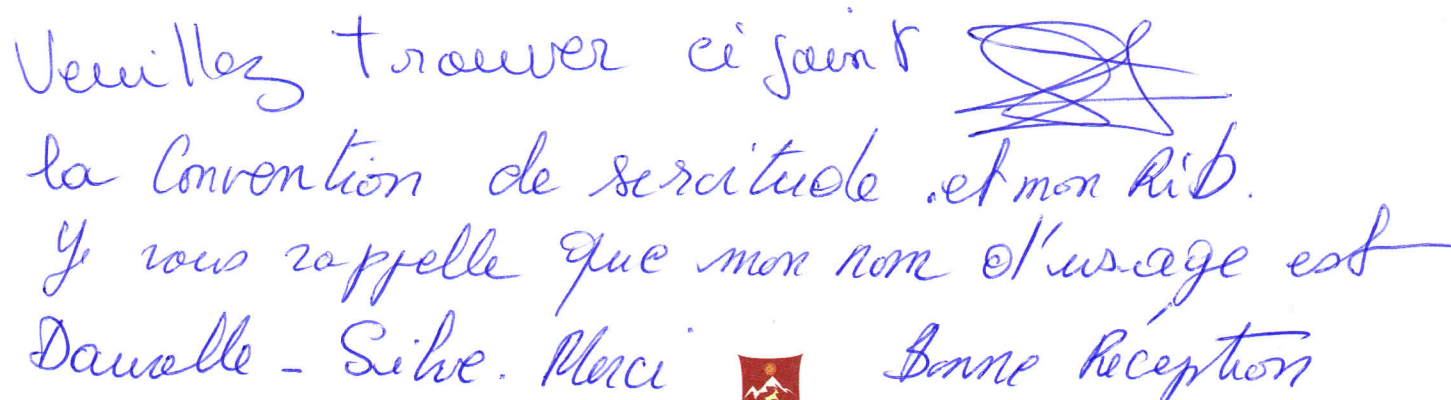 Veuillez trouver ci joint
la Convention de servitude .et mon RiB.
Je vous rappelle que mon nom d'usage est
- Silve. Merci Bonne Réception